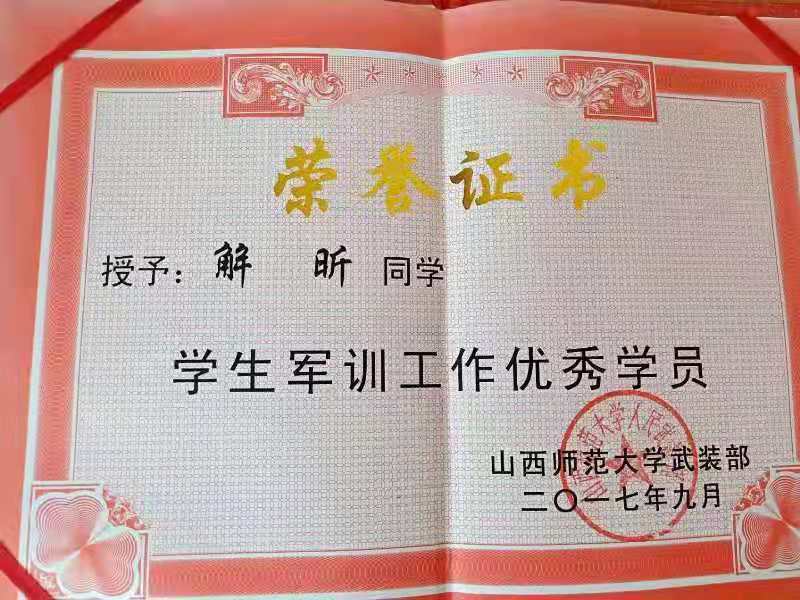 荣誉证书
授予：解 昕 同学
学生军训工作优秀学员
山西师范大学武装部
二〇一七年九月